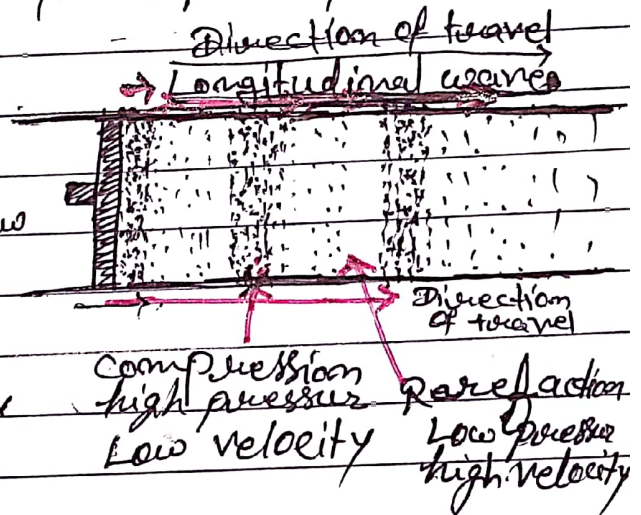 Direction of travel
Longitudinal waves
Direction
of travel
compression
high pressur
Low velocity
Rarefaction
Low pressur
high velocity